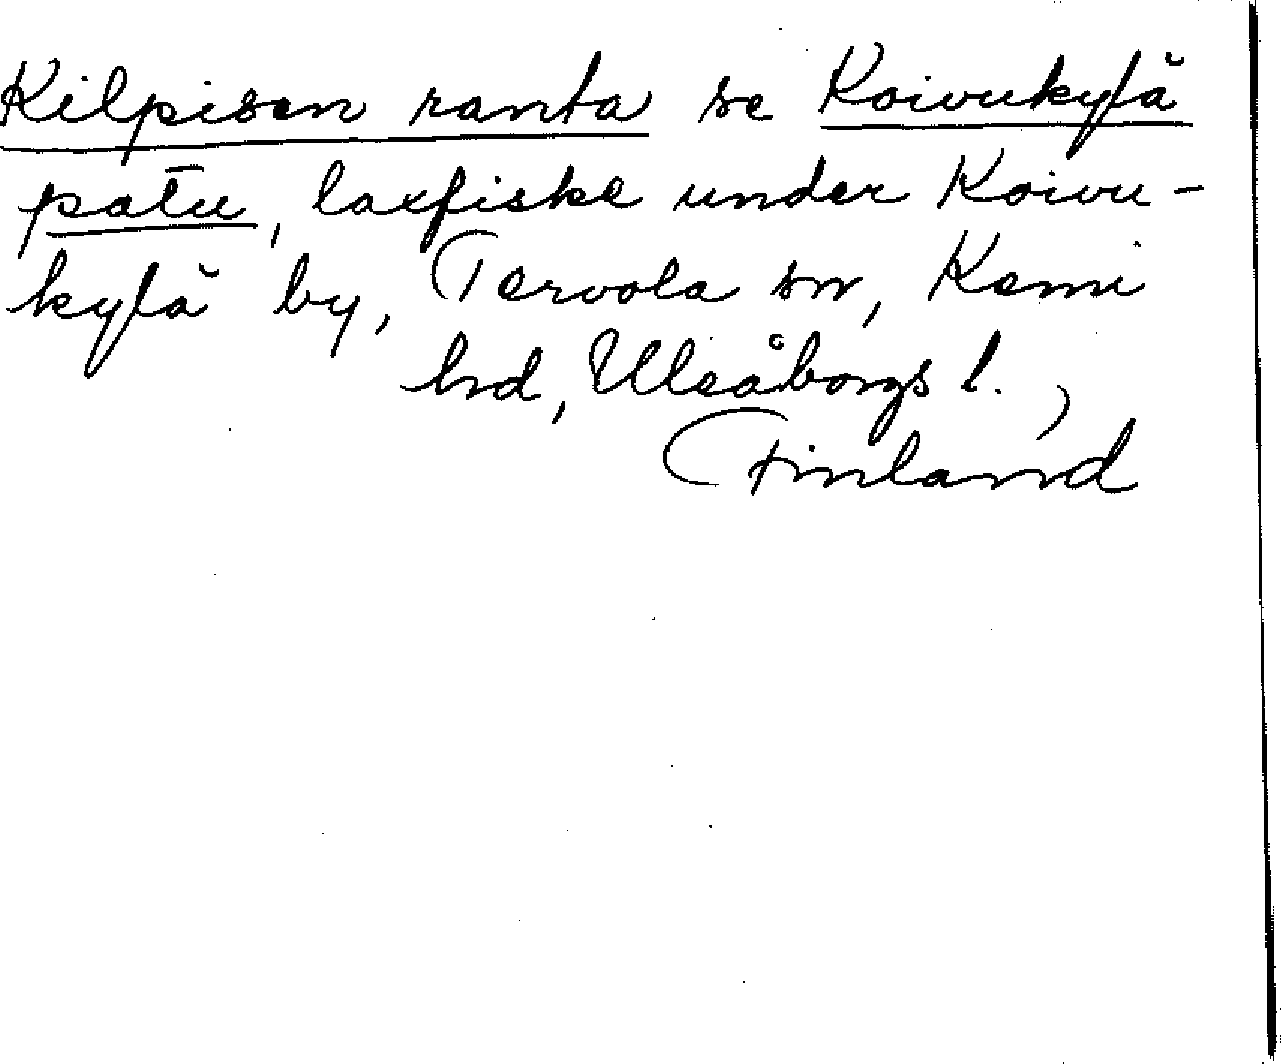 Kilpisen ranta se Koivukylä
patu, laxfiske under Koivu-
kylä by, Tervola sn, Kemi
hd, Uleåborgs l.,
Finland